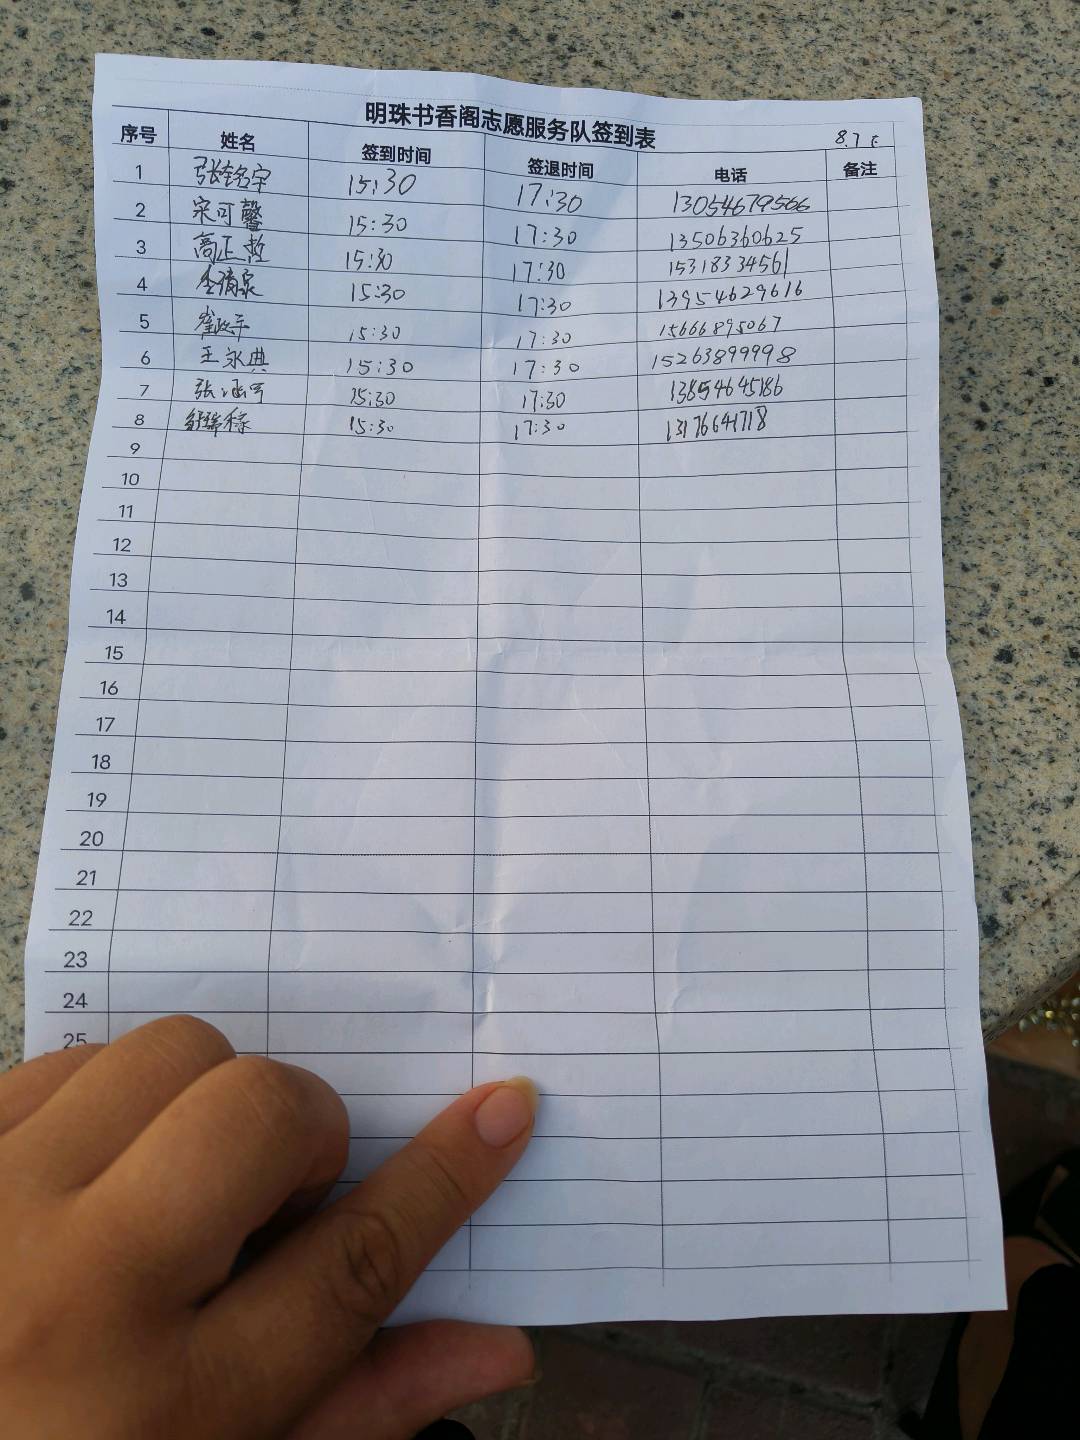 明珠书香阁志愿服务队签到表
8.7
序号 姓名 签到时间 签退时间 电话 备注
1 张铭宇 15:30 17:30 13054679566
2 宋可馨 15:30 17:30 13506360625
3 高正 15:30 17:30 15318334561
4 15:30 17:30 13954629616
5 崔政平 15:30 17:30 15666895067
6 王永典 15:30 17:30 15263899998
7 张涵可 15:30 17:30 13854645186
8 15:30 17:30 13176641718
9
10
11
12
13
14
15
16
17
18
19
20
21
22
23
24
25